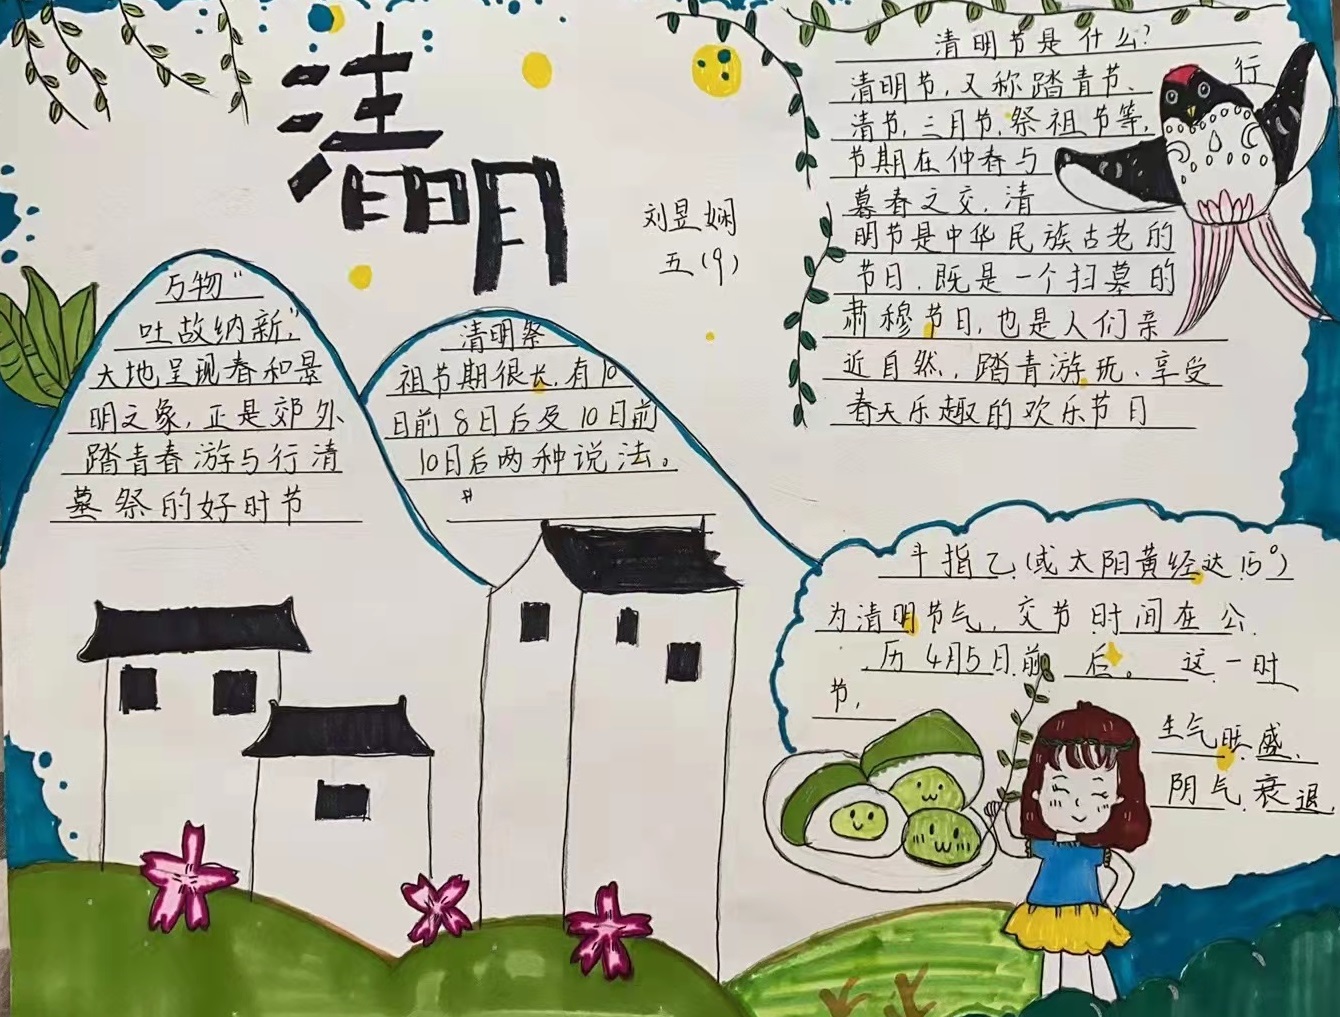 清明
刘昱娴
五(9)
万物“
吐故纳新”,
大地呈现春和景
明之象,正是郊外
踏青春游与行清
墓祭的好时节
清明祭
祖节期很长,有10
日前8日后及10日前
10日后两种说法。
清明节是什么?
清明节,又称踏青节、行
清节,三月节,祭祖节等,
节期在仲春与
暮春之交,清
明节是中华民族古老的
节日,既是一个扫墓的
肃穆节日,也是人们亲
近自然,踏青游玩、享受
春天乐趣的欢乐节日
斗指乙(或太阳黄经达15°)
为清明节气,交节时间在公
历4月5日前后。这一时
节,
生气旺盛、
阴气衰退,